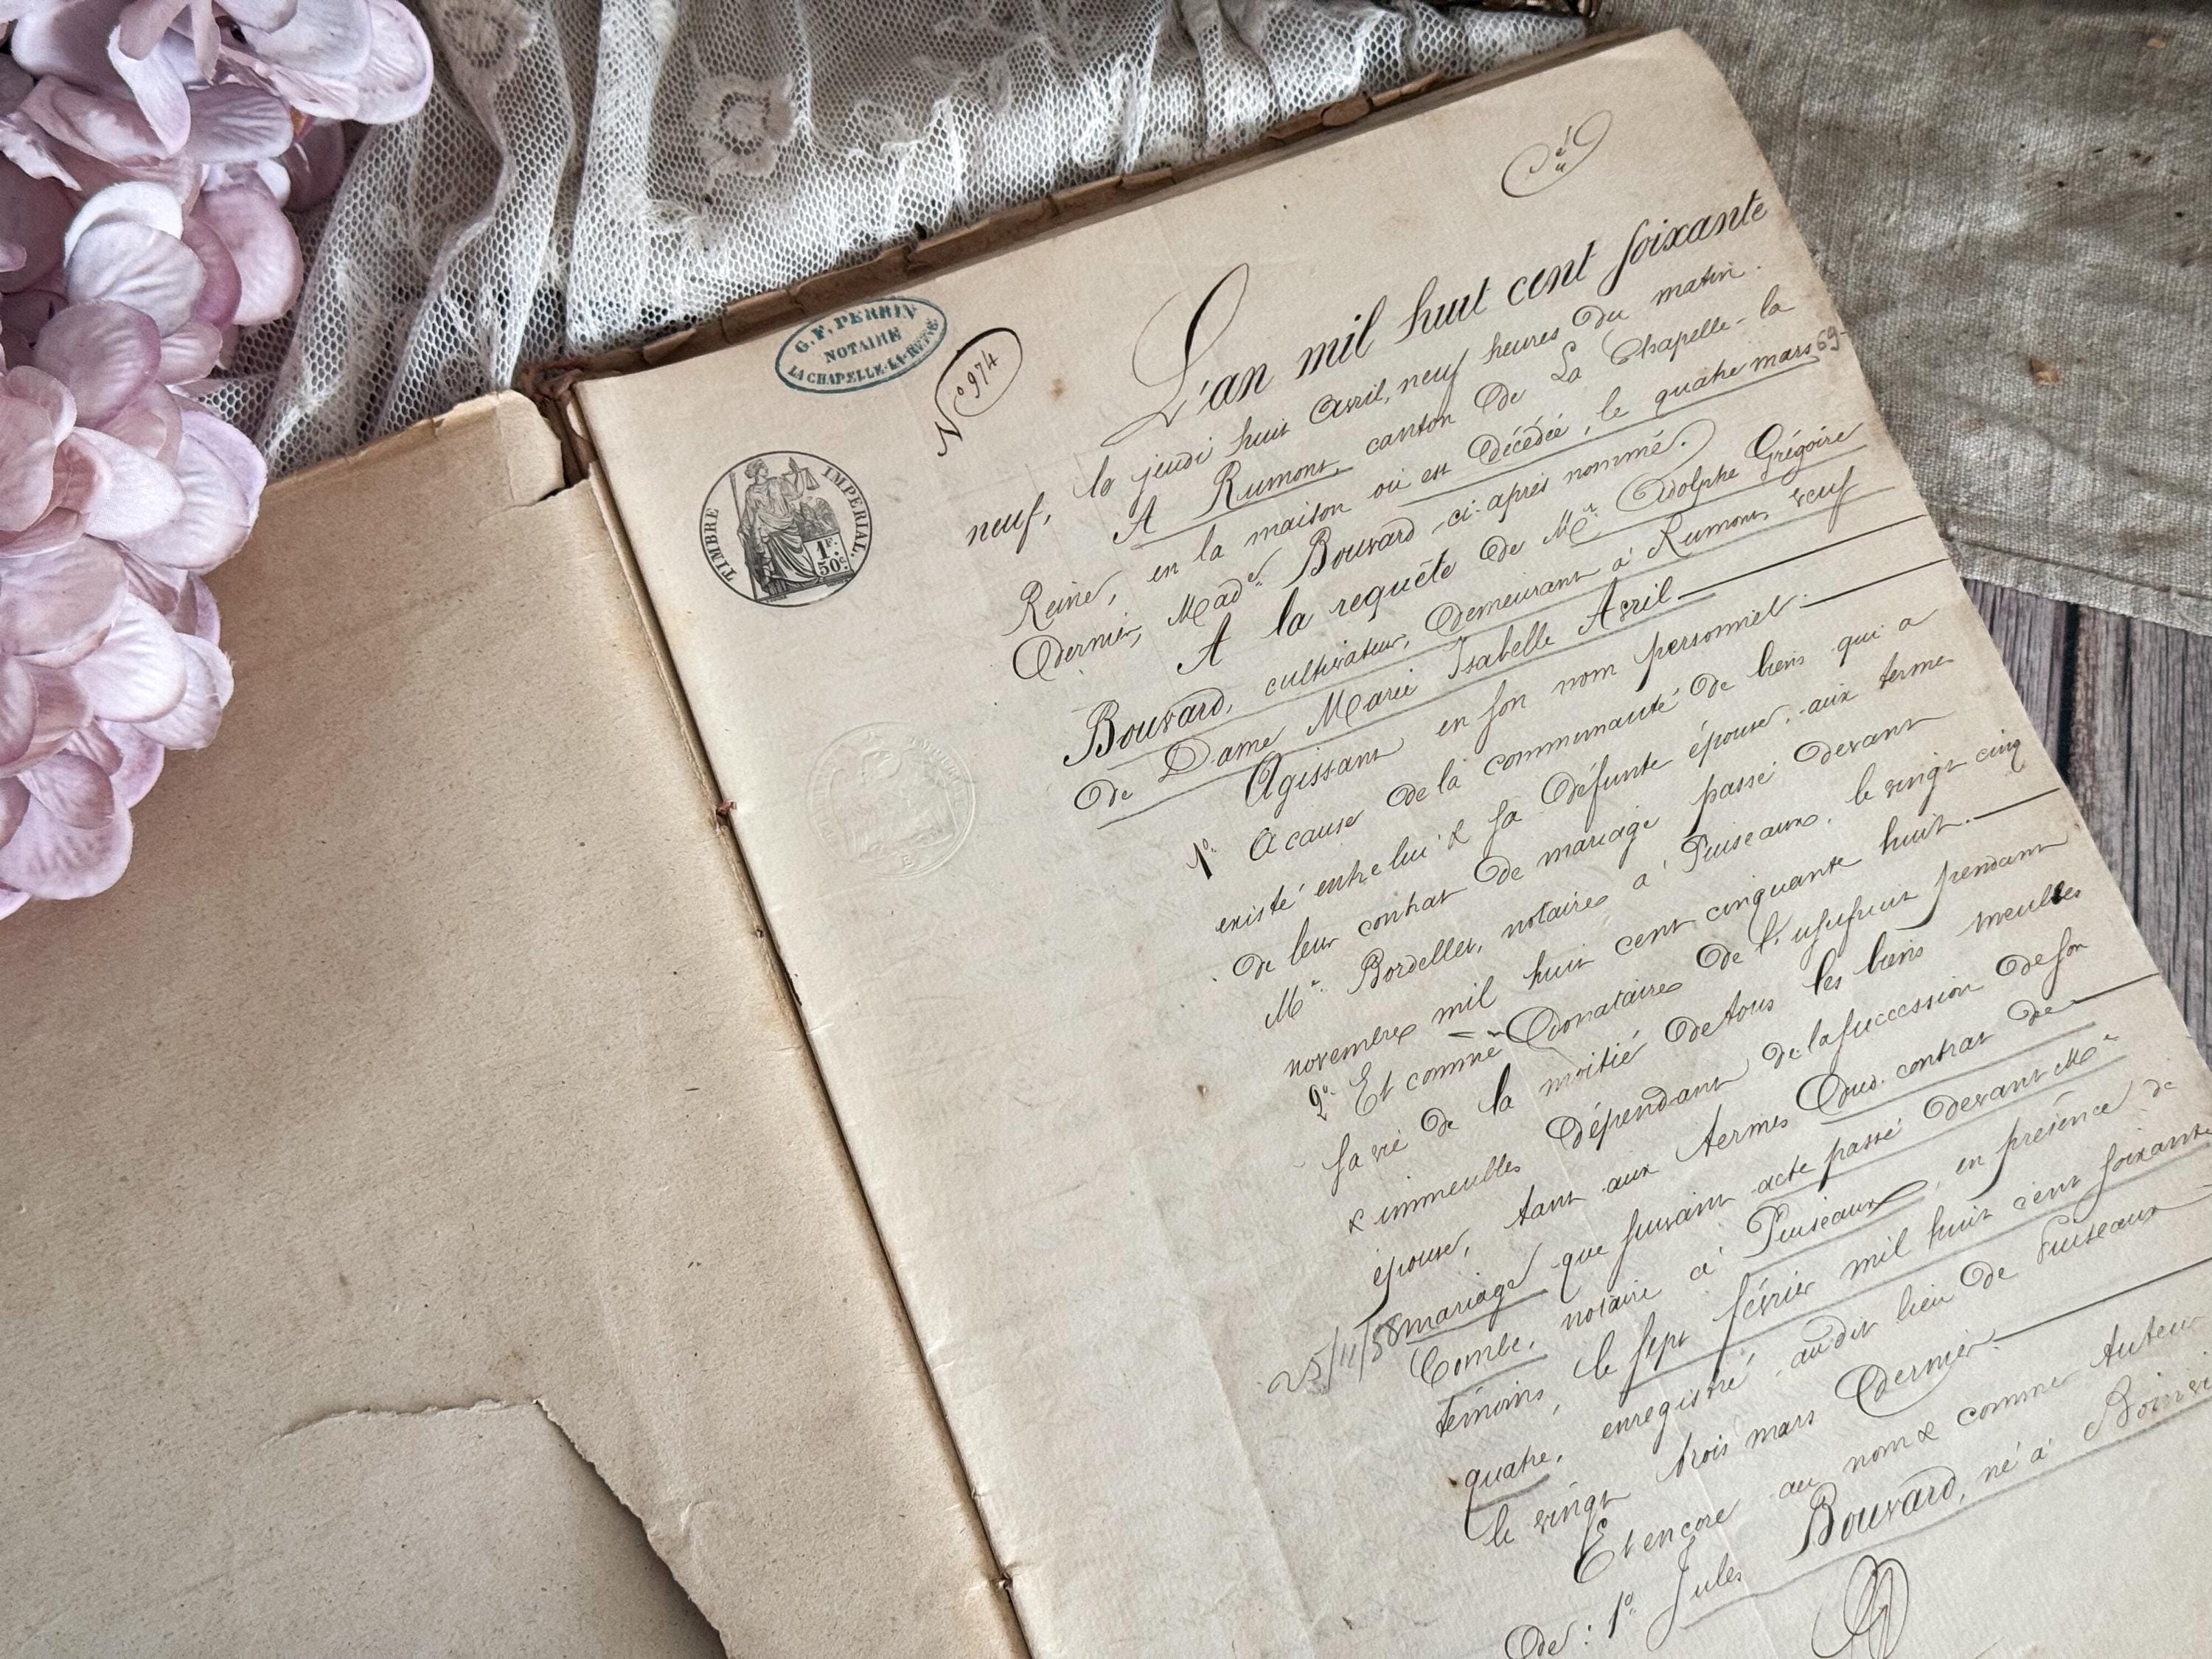 G. F. PERRIN
NOTAIRE
LA CHAPELLE-LA-REINE
N° 974
TIMBRE IMPÉRIAL.
1F.
50c.
L'an mil huit cent soixante
neuf, le jeudi huit Avril, neuf heures du matin.
A Rumont, canton de La Chapelle-la
Reine, en la maison où est décédée, le quatre mars 69
dernier, Made Bouvard ci-après nommé.
A la requête de Mr Adolphe Grégoire
Bouvard, cultivateur, demeurant à Rumont, veuf
de Dame Marie Isabelle Avril
Agissant en son nom personnel:
1° A cause de la communauté de biens qui a
existé entre lui & sa défunte épouse, aux terme
de leur contrat de mariage passé devant
Me Bordellet, notaire à Puiseaux, le vingt cinq
novembre mil huit cent cinquante huit.
2° Et comme donataire de l'usufruit pendant
sa vie de la moitié de tous les biens meubles
& immeubles dépendant de la succession de son
épouse, tant aux termes dud. contrat de
25/11/58 mariage que suivant acte passé devant Me
Combe, notaire à Puiseaux, en présence de
témoins, le sept février mil huit cent soixante
quatre, enregistré audit lieu de Puiseaux
le vingt trois mars dernier.
Et encore au nom & comme tuteur
de: 1° Jules Bouvard, né à